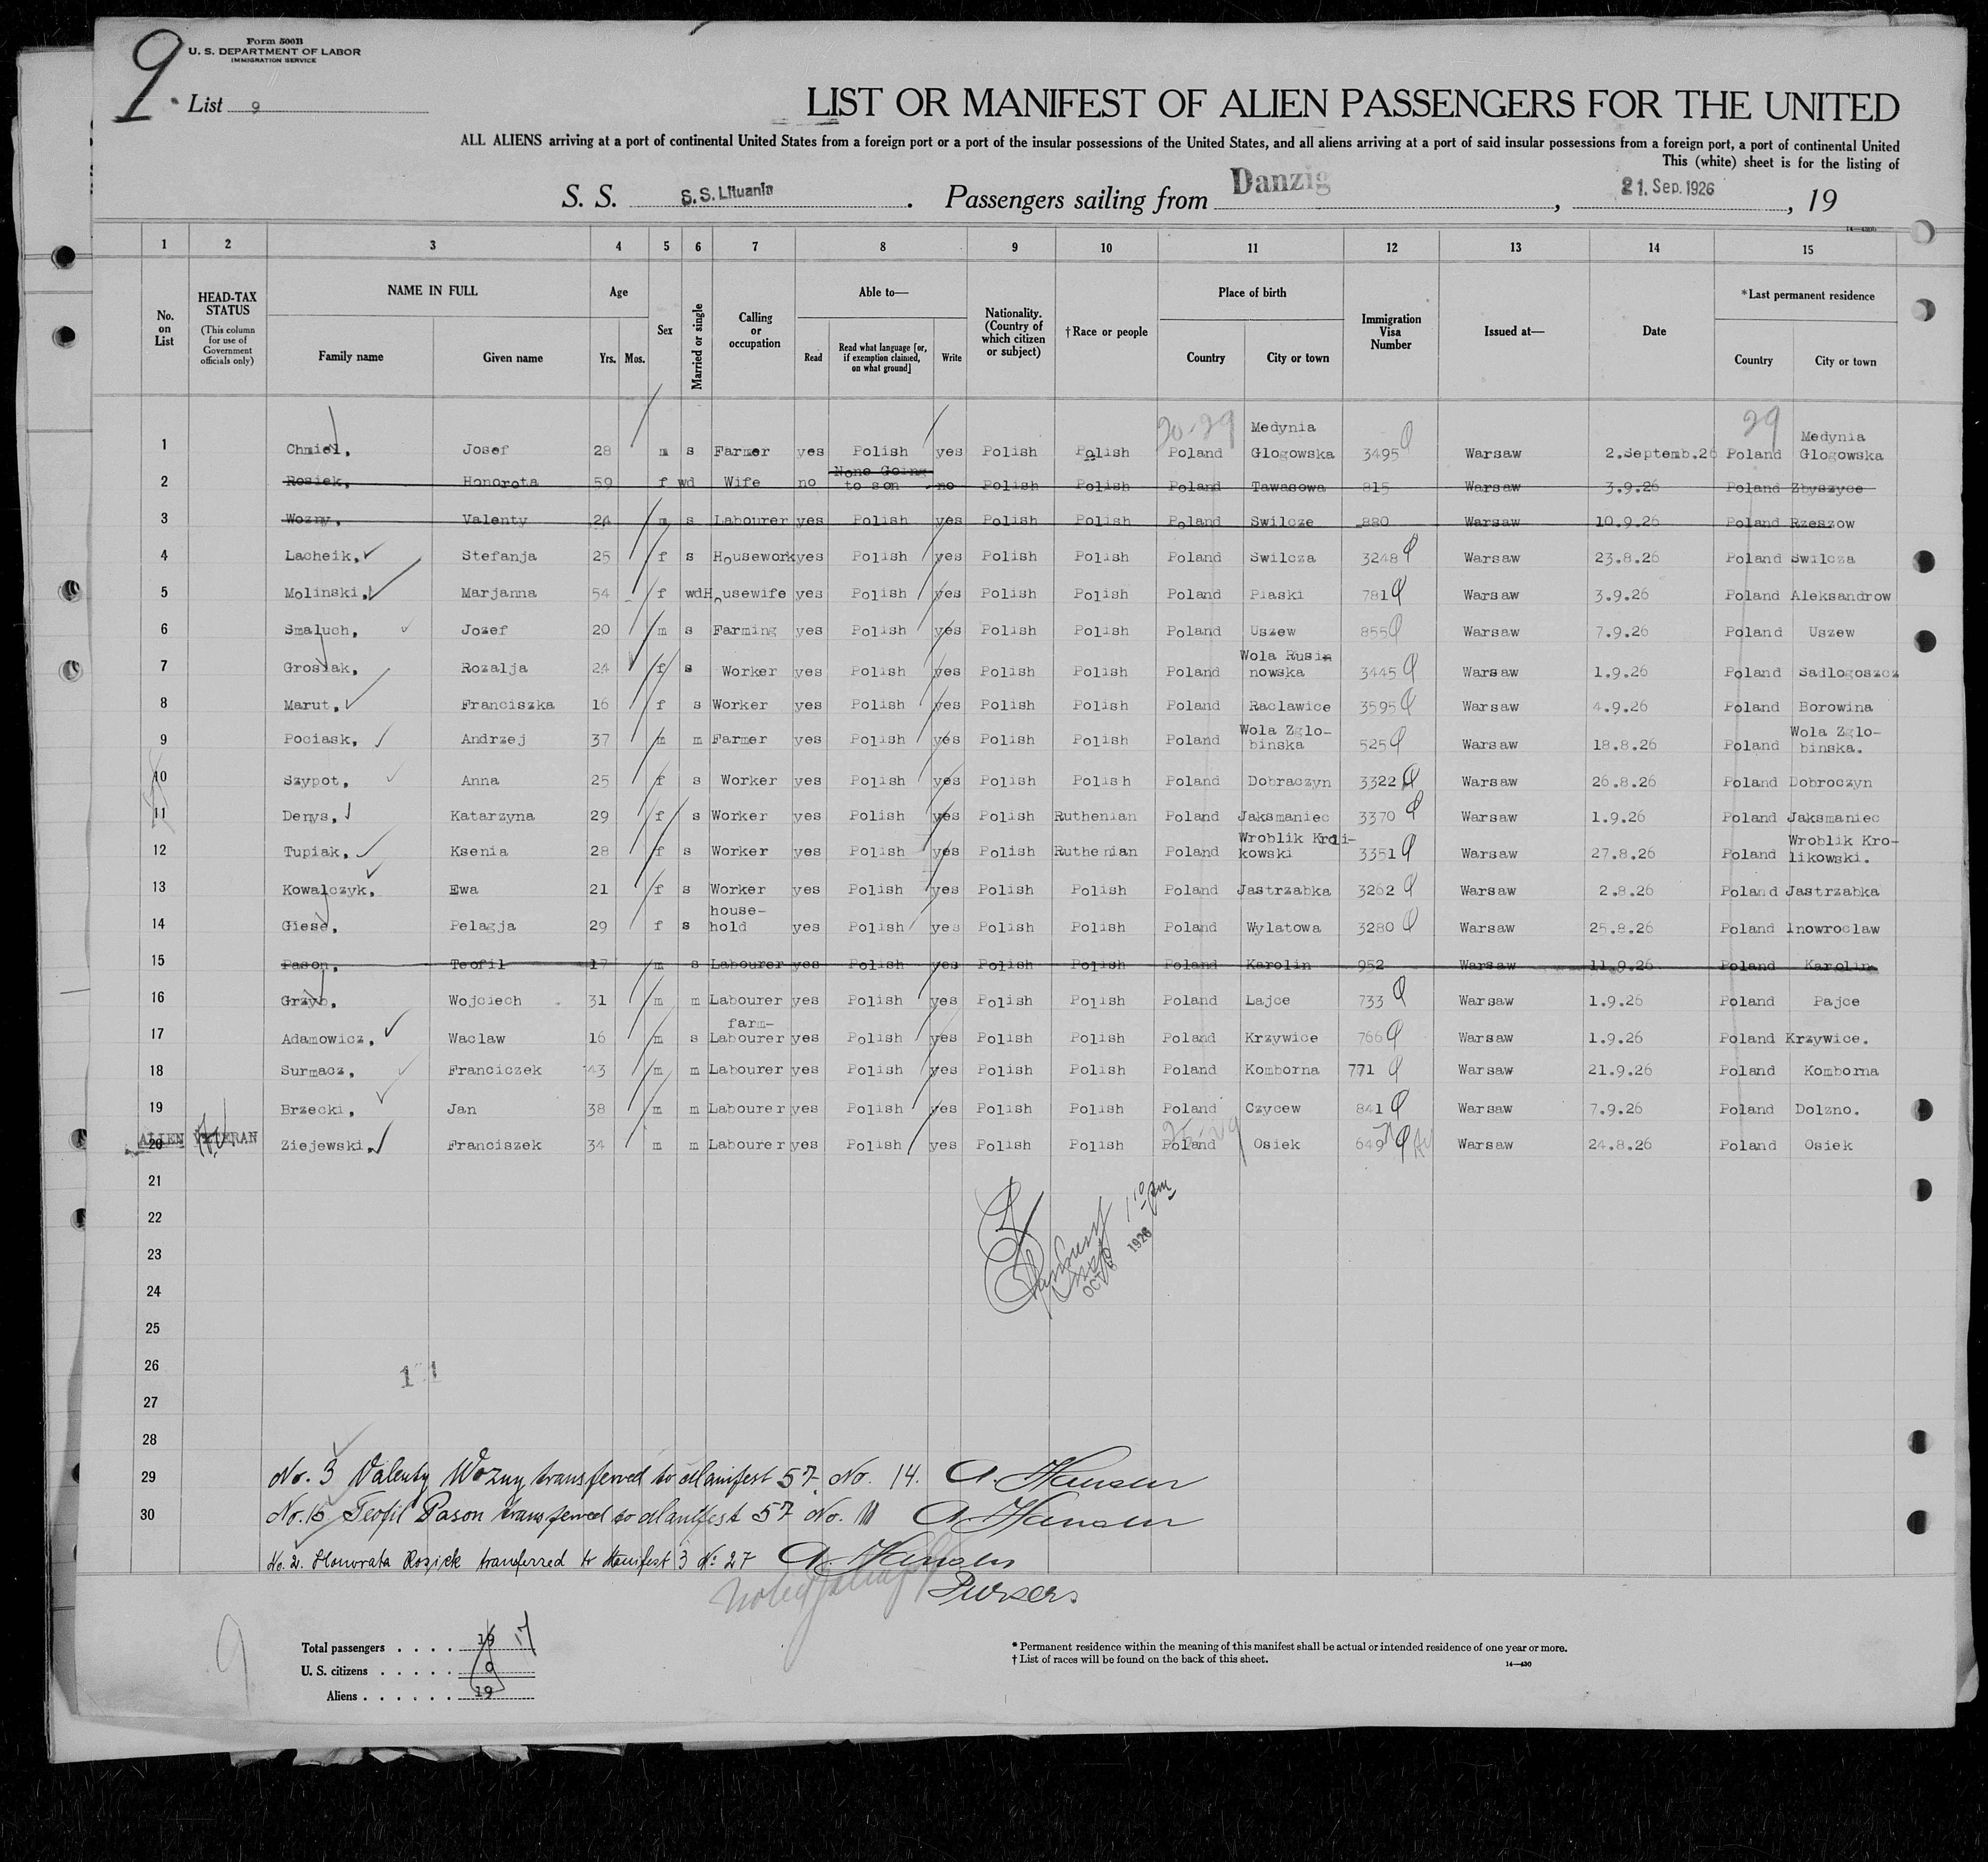 9
Form 500B
U. S. DEPARTMENT OF LABOR
IMMIGRATION SERVICE
List 9
LIST OR MANIFEST OF ALIEN PASSENGERS FOR THE UNITED
ALL ALIENS arriving at a port of continental United States from a foreign port or a port of the insular possessions of the United States, and all aliens arriving at a port of said insular possessions from a foreign port, a port of continental United
This (white) sheet is for the listing of
S. S. S.S. Lituania. Passengers sailing from Danzig, 21. Sep. 1926, 19
1 2 3 4 5 6 7 8 9 10 11 12 13 14 15
No. on List
HEAD-TAX STATUS (This column for use of Government officials only)
NAME IN FULL Family name Given name
Age Yrs. Mos.
Sex
Married or single
Calling or occupation
Able to— Read Read what language [or, if exemption claimed, on what ground] Write
Nationality. (Country of which citizen or subject)
†Race or people
Place of birth Country City or town
Immigration Visa Number
Issued at—
Date
*Last permanent residence Country City or town
20-29 29
1 Chmiel, Josef 28 m s Farmer yes Polish yes Polish Polish Poland Medynia Glogowska 3495 Warsaw 2.Septemb.26 Poland Medynia Glogowska
2 Rosiek, Honorota 59 f wd Wife no None Going to son no Polish Polish Poland Tawasowa 815 Warsaw 3.9.26 Poland Zbyszyce
3 Wozny, Valenty 24 m s Labourer yes Polish yes Polish Polish Poland Swilcze 880 Warsaw 10.9.26 Poland Rzeszow
4 Lacheik, Stefanja 25 f s Housework yes Polish yes Polish Polish Poland Swilcza 3248 Warsaw 23.8.26 Poland Swilcza
5 Molinski, Marjanna 54 f wd Housewife yes Polish yes Polish Polish Poland Piaski 781 Warsaw 3.9.26 Poland Aleksandrow
6 Smaluch, Jozef 20 m s Farming yes Polish yes Polish Polish Poland Uszew 855 Warsaw 7.9.26 Poland Uszew
7 Groslak, Rozalja 24 f s Worker yes Polish yes Polish Polish Poland Wola Rusin nowska 3445 Warsaw 1.9.26 Poland Sadlogoszcz
8 Marut, Franciszka 16 f s Worker yes Polish yes Polish Polish Poland Raclawice 3595 Warsaw 4.9.26 Poland Borowina
9 Pociask, Andrzej 37 m m Farmer yes Polish yes Polish Polish Poland Wola Zglo- binska 525 Warsaw 18.8.26 Poland Wola Zglo- binska.
10 Szypot, Anna 25 f s Worker yes Polish yes Polish Polish Poland Dobraczyn 3322 Warsaw 26.8.26 Poland Dobroczyn
11 Denys, Katarzyna 29 f s Worker yes Polish yes Polish Ruthenian Poland Jaksmaniec 3370 Warsaw 1.9.26 Poland Jaksmaniec
12 Tupiak, Ksenia 28 f s Worker yes Polish yes Polish Ruthenian Poland Wroblik Kroli- kowski 3351 Warsaw 27.8.26 Poland Wroblik Kro- likowski.
13 Kowalczyk, Ewa 21 f s Worker yes Polish yes Polish Polish Poland Jastrzabka 3262 Warsaw 2.8.26 Poland Jastrzabka
14 Giese, Pelagja 29 f s house- hold yes Polish yes Polish Polish Poland Wylatowa 3280 Warsaw 25.8.26 Poland Inowroclaw
15 Pason, Teofil 17 m s Labourer yes Polish yes Polish Polish Poland Karolin 952 Warsaw 11.9.26 Poland Karolin
16 Grzyb, Wojciech 31 m m Labourer yes Polish yes Polish Polish Poland Lajce 733 Warsaw 1.9.26 Poland Pajce
17 Adamowicz, Waclaw 16 m s farm- Labourer yes Polish yes Polish Polish Poland Krzywice 766 Warsaw 1.9.26 Poland Krzywice.
18 Surmacz, Franciczek 43 m m Labourer yes Polish yes Polish Polish Poland Komborna 771 Warsaw 21.9.26 Poland Komborna
19 Brzecki, Jan 38 m m Labourer yes Polish yes Polish Polish Poland Czycew 841 Warsaw 7.9.26 Poland Dolzno.
ALIEN VETERAN
20 Ziejewski, Franciszek 34 m m Labourer yes Polish yes Polish Polish Poland Osiek 649 Warsaw 24.8.26 Poland Osiek
21
22
23
24
OCT 1926
25
26
27
28
29 No. 3 Valenty Wozny transferred to Manifest 57. No. 14. A. Hansen
30 No. 15 Teofil Pason transferred to Manifest 57 No. 11 A. Hansen
No. 2. Honorata Rosick transferred to Manifest 3 No 27 A. Hansen
Pursers
9
Total passengers . . . . 19 17
U. S. citizens . . . . . 0
Aliens . . . . . . 19
* Permanent residence within the meaning of this manifest shall be actual or intended residence of one year or more.
† List of races will be found on the back of this sheet.
14—430